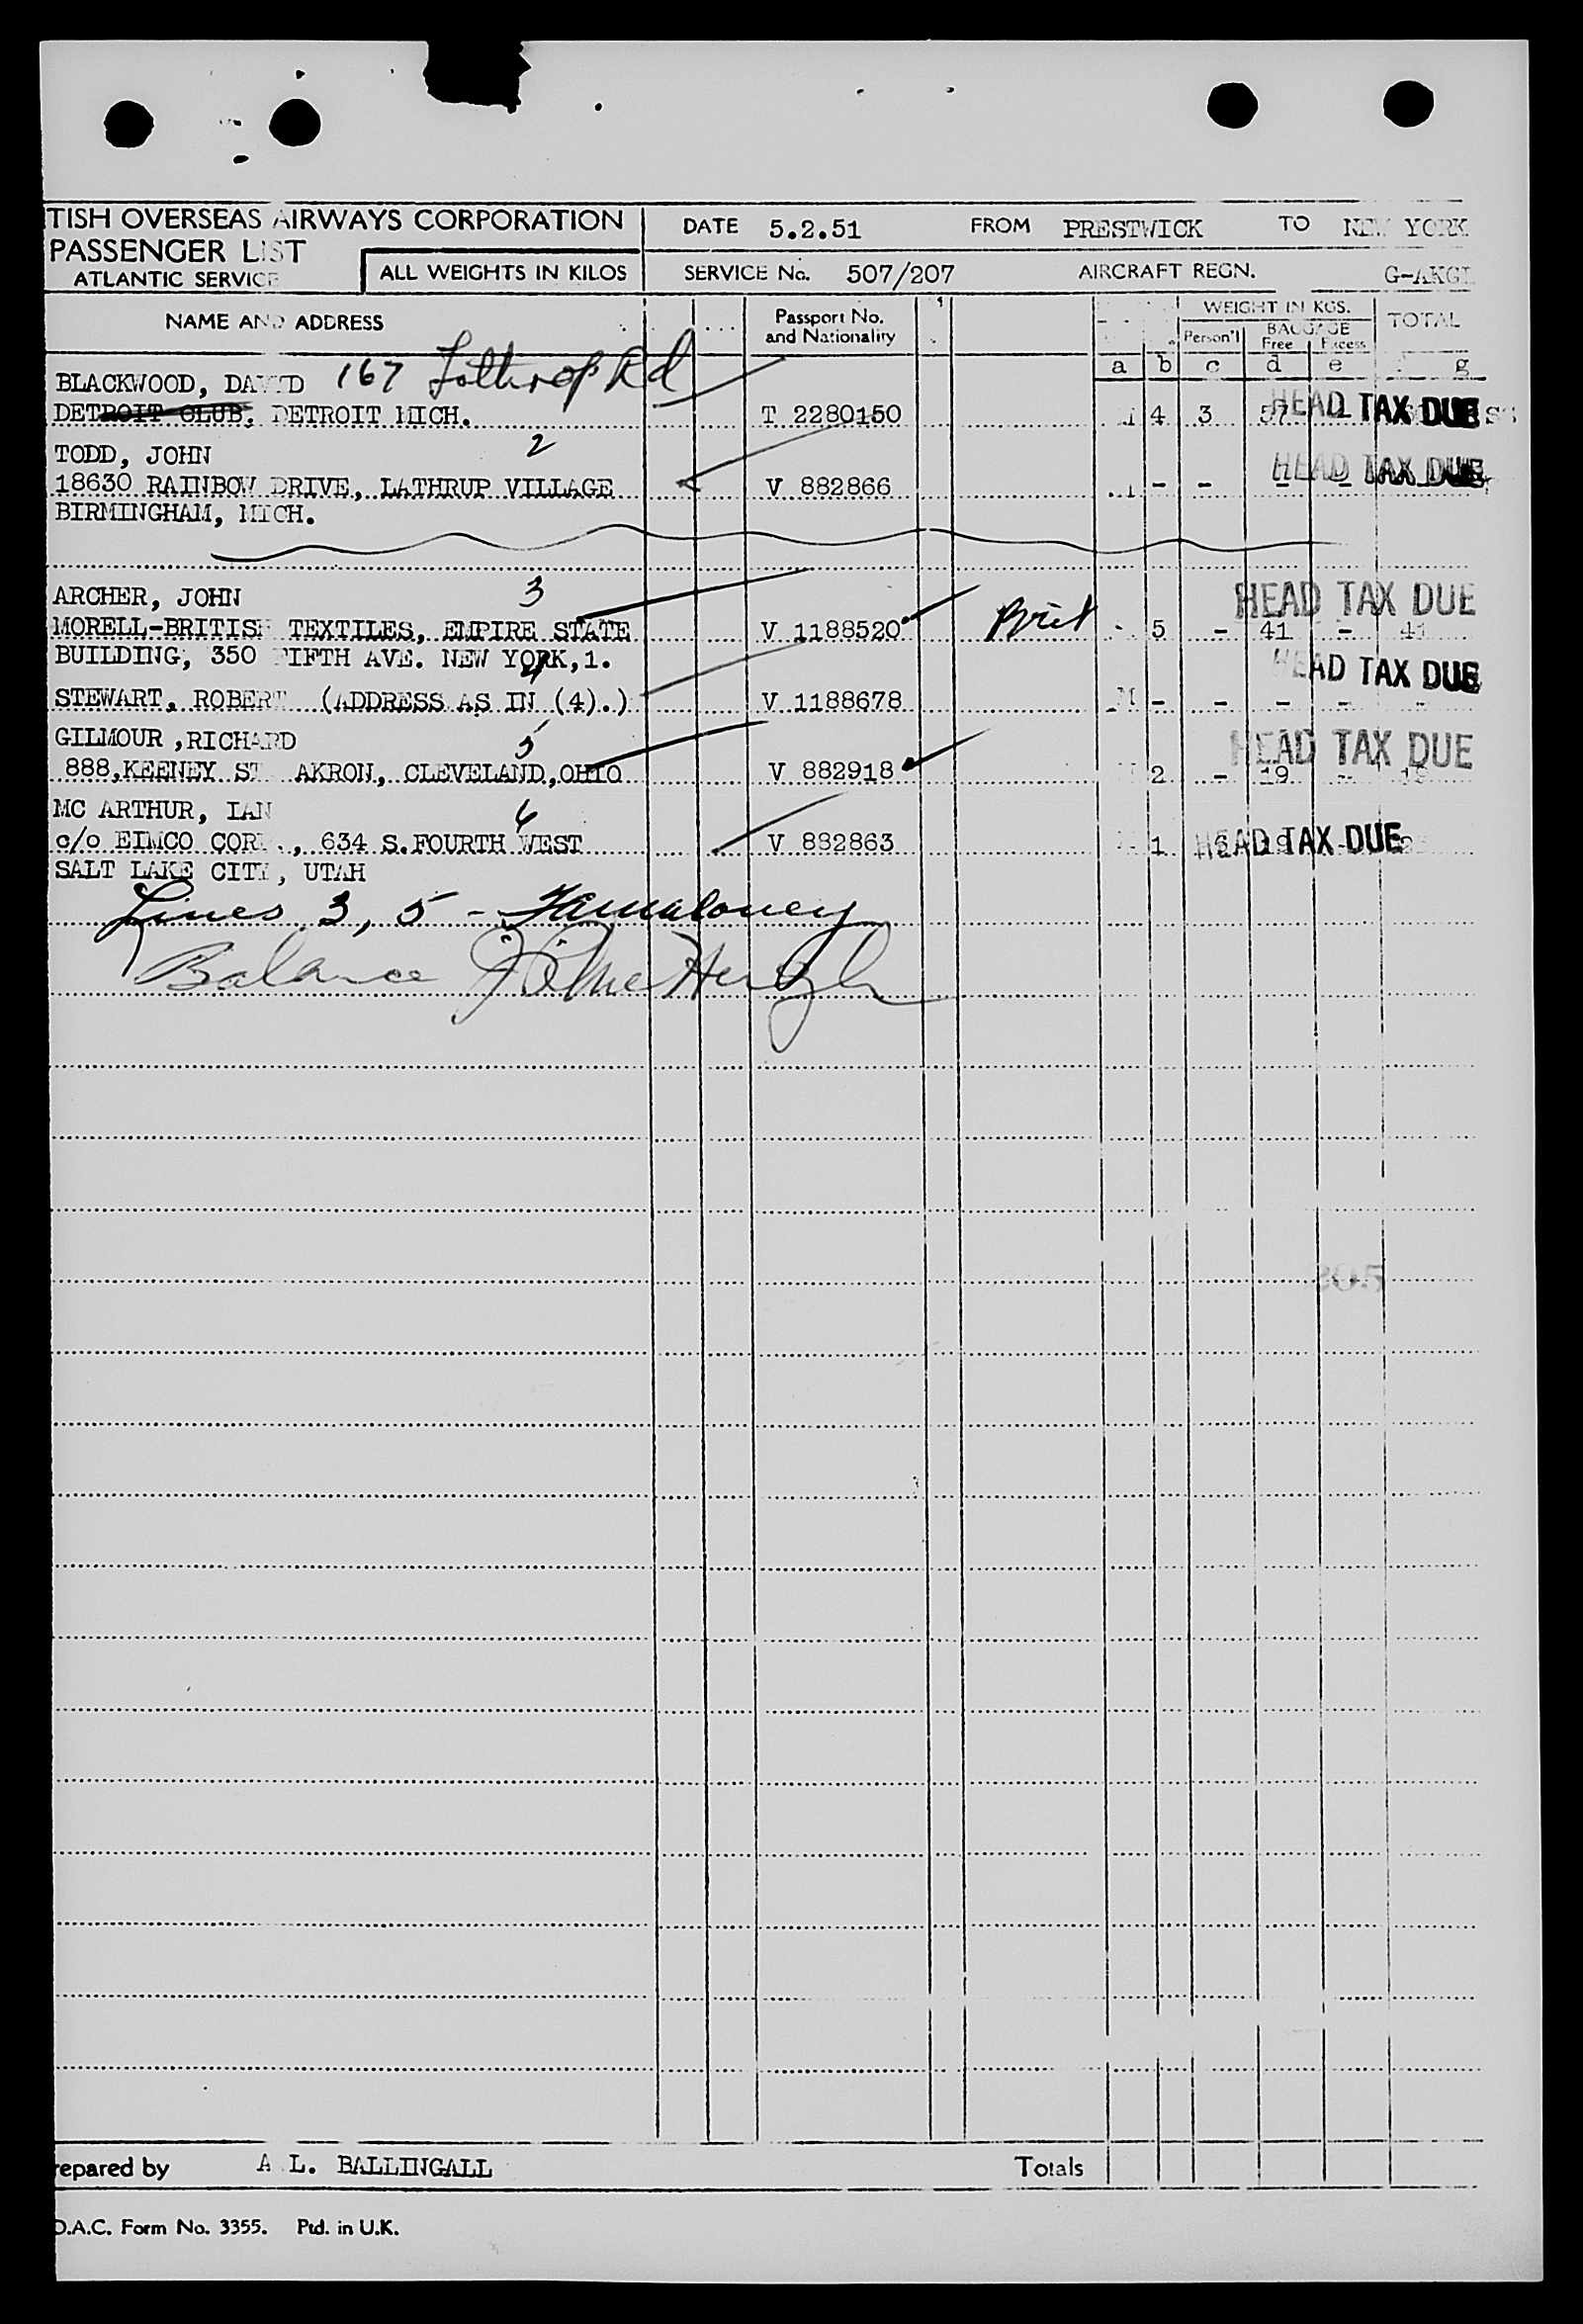 TISH OVERSEAS AIRWAYS CORPORATION
PASSENGER LIST
ATLANTIC SERVICE
ALL WEIGHTS IN KILOS
DATE 5.2.51 FROM PRESTWICK TO NEW YORK
SERVICE No. 507/207 AIRCRAFT REGN. G-AKGL
NAME AND ADDRESS
Passport No.
and Nationality
WEIGHT IN KGS.
Person'l
BAGGAGE
Free Excess
TOTAL
a b c d e g
BLACKWOOD, DAVID 167 Lothrop Rd
DETROIT CLUB, DETROIT MICH. T 2280150 4 3 57 HEAD TAX DUE
TODD, JOHN 2
18630 RAINBOW DRIVE, LATHRUP VILLAGE V 882866 - - - - HEAD TAX DUE
BIRMINGHAM, MICH.
ARCHER, JOHN 3 HEAD TAX DUE
MORELL-BRITISH TEXTILES, EMPIRE STATE V 1188520 Brit 5 - 41 - 41
BUILDING, 350 FIFTH AVE. NEW YORK,1.
4 HEAD TAX DUE
STEWART, ROBERT (ADDRESS AS IN (4).) V 1188678 M - - - - -
GILMOUR ,RICHARD 5 HEAD TAX DUE
888,KEENEY ST AKRON, CLEVELAND,OHIO V 882918 2 - 19 - 19
MC ARTHUR, IAN 6
c/o EIMCO CORP., 634 S.FOURTH WEST V 882863 1 HEAD TAX DUE
SALT LAKE CITY, UTAH
Lines 3, 5 -
Balance
305
repared by A L. BALLINGALL Totals
O.A.C. Form No. 3355. Ptd. in U.K.